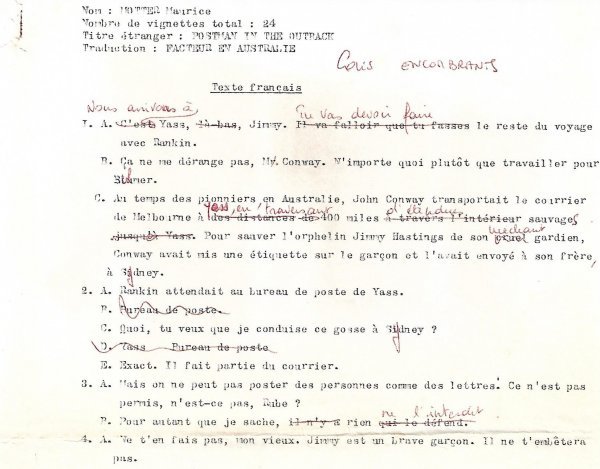 Nom : MOTTER Maurice
Nombre de vignettes total : 24
Titre étranger : POSTMAN IN THE OUTBACK
Traduction : FACTEUR EN AUSTRALIE
Colis ENCOMBRANTS
Texte français
Nous arrivons à, Tu vas devoir faire
1. A. C'est Yass, là-bas, Jimmy. Il va falloir que tu fasses le reste du voyage
avec Rankin.
B. Ça ne me dérange pas, Mr. Conway. N'importe quoi plutôt que travailler pour
C. Au temps des pionniers en Australie, John Conway transportait le courrier
Yass, en traversant d'étendues
de Melbourne à des distances de 400 miles à travers l'intérieur sauvages
méchant
jusqu'à Yass. Pour sauver l'orphelin Jimmy Hastings de son cruel gardien,
Conway avait mis une étiquette sur le garçon et l'avait envoyé à son frère,
à Sydney.
2. A. Rankin attendait au bureau de poste de Yass.
B. Bureau de poste.
C. Quoi, tu veux que je conduise ce gosse à Sydney ?
D. Yass Bureau de poste
E. Exact. Il fait partie du courrier.
3. A. Mais on ne peut pas poster des personnes comme des lettres. Ce n'est pas
permis, n'est-ce pas, Rube ?
ne l'interdit
B. Pour autant que je sache, il n'y a rien qui le défend.
4. A. Ne t'en fais pas, mon vieux. Jimmy est un brave garçon. Il ne t'embêtera
pas.